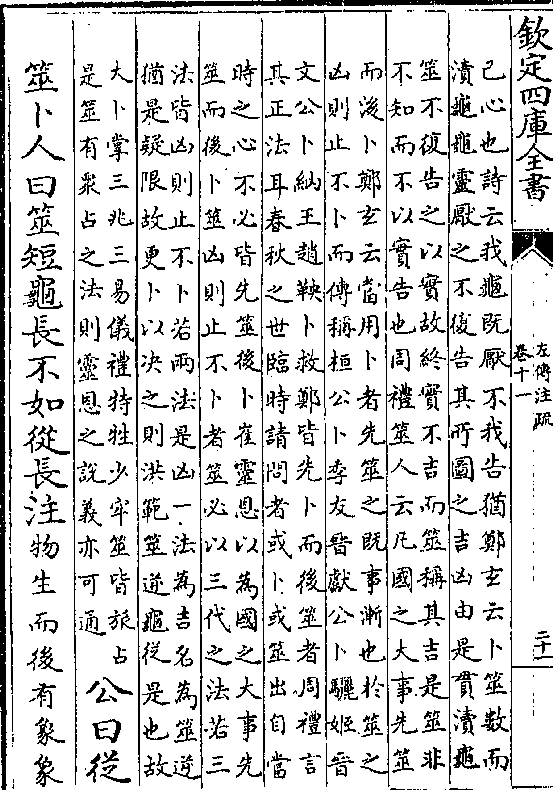 欽定四庫全書
左傳注疏
卷十一
二十一
己心也詩云我龜既厭不我告猶鄭玄云卜筮數而
瀆龜龜靈厭之不復告其所圖之吉凶由是貫瀆龜
筮不復告之以實故終實不吉而筮稱其吉是筮非
不知而不以實告也周禮筮人云凡國之大事先筮
而後卜鄭玄云當用卜者先筮之既事漸也於筮之
凶則止不卜而傳稱桓公卜季友晉獻公卜驪姬晉
文公卜納王趙鞅卜救鄭皆先卜而後筮者周禮言
其正法耳春秋之世臨時請問者或卜或筮出自當
時之心不必皆先筮後卜崔靈恩以為國之大事先
筮而後卜筮凶則止不卜者筮必以三代之法若三
法皆凶則止不卜若兩法是凶一法為吉名為筮逆
猶是疑限故更卜以決之則洪範筮逆龜從是也故
大卜掌三兆三易儀禮特牲少牢筮皆旅占
是筮有衆占之法則靈恩之說義亦可通
公曰從
筮卜人曰筮短龜長不如從長注物生而後有象象